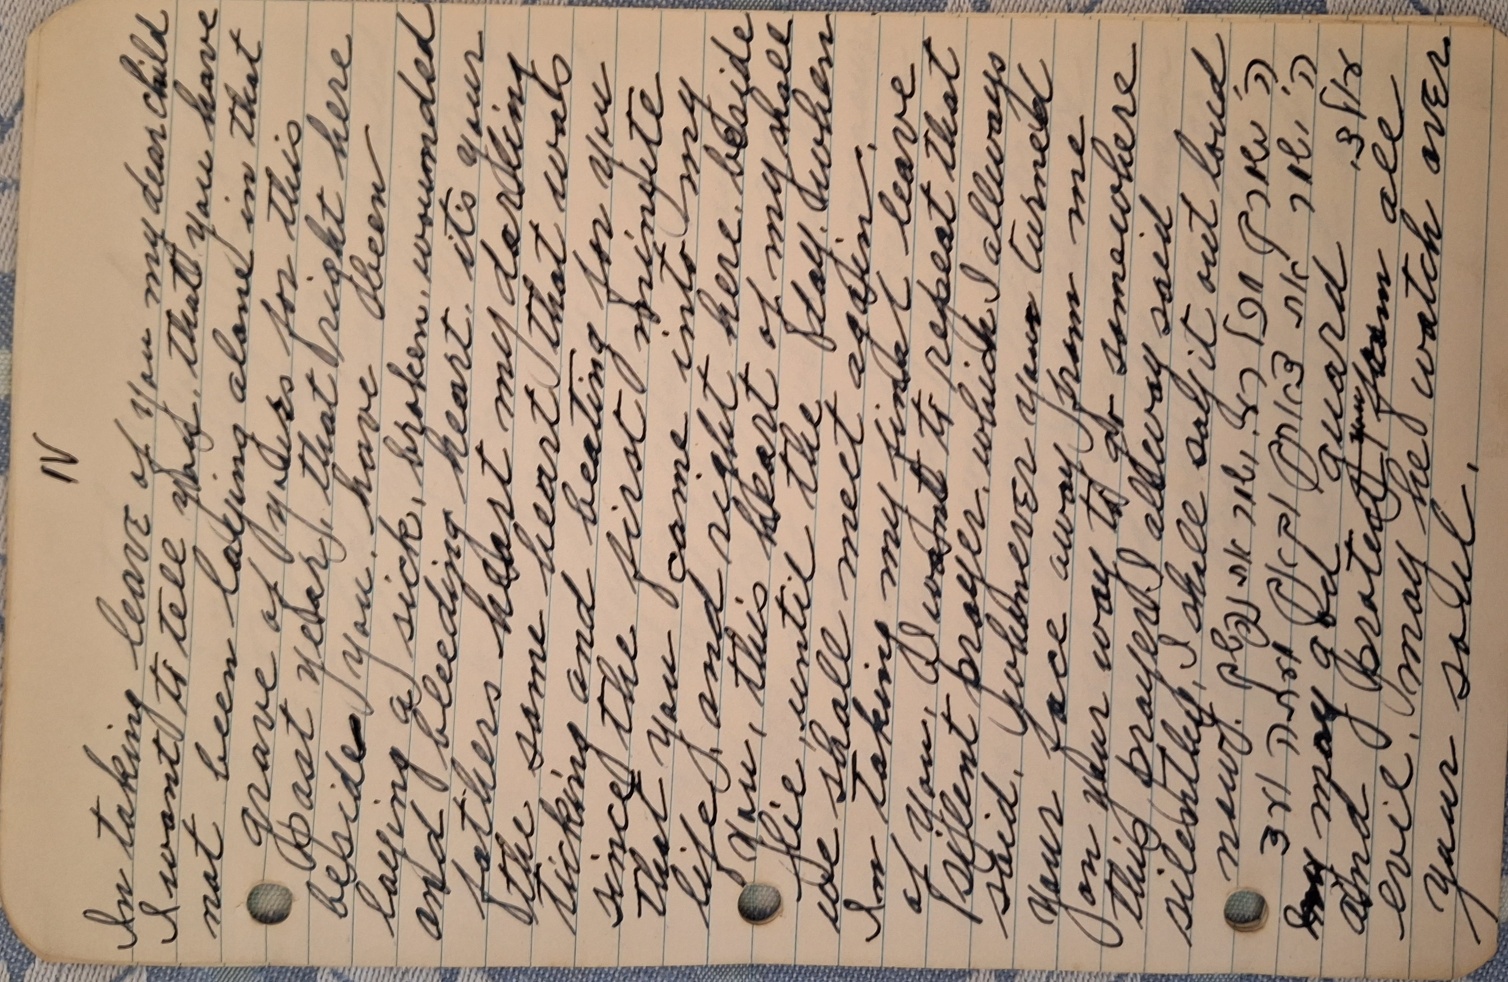 IV
In taking leave of you my dear child
I want to tell you, that you have
not been laying alone in that
grave of yours for this
Past year, that right here
beside you, have been
laying a sick, broken, wounded
and bleeding heart, it's your
fathers heart my darling
the same heart that was
ticking and beating for you
since the first minute
that you came into my
life, and right here beside
you, this heart of my shall
lie, until the day, when
we shall meet again.
In taking my final leave
of you, I want to repeat that
silent prayer, which I allways
said, whenever you turned
your face away from me
on your way to go somewhere
this prayer I allway said
silenthly, I shall say it out loud
now, ה' ישמרך מכל רע ישמר את נפשך
ה' ישמר צאתך ובואך מעתה ועד
עולם
may god guard
and protect you from all
evil, may he watch over
your soul,